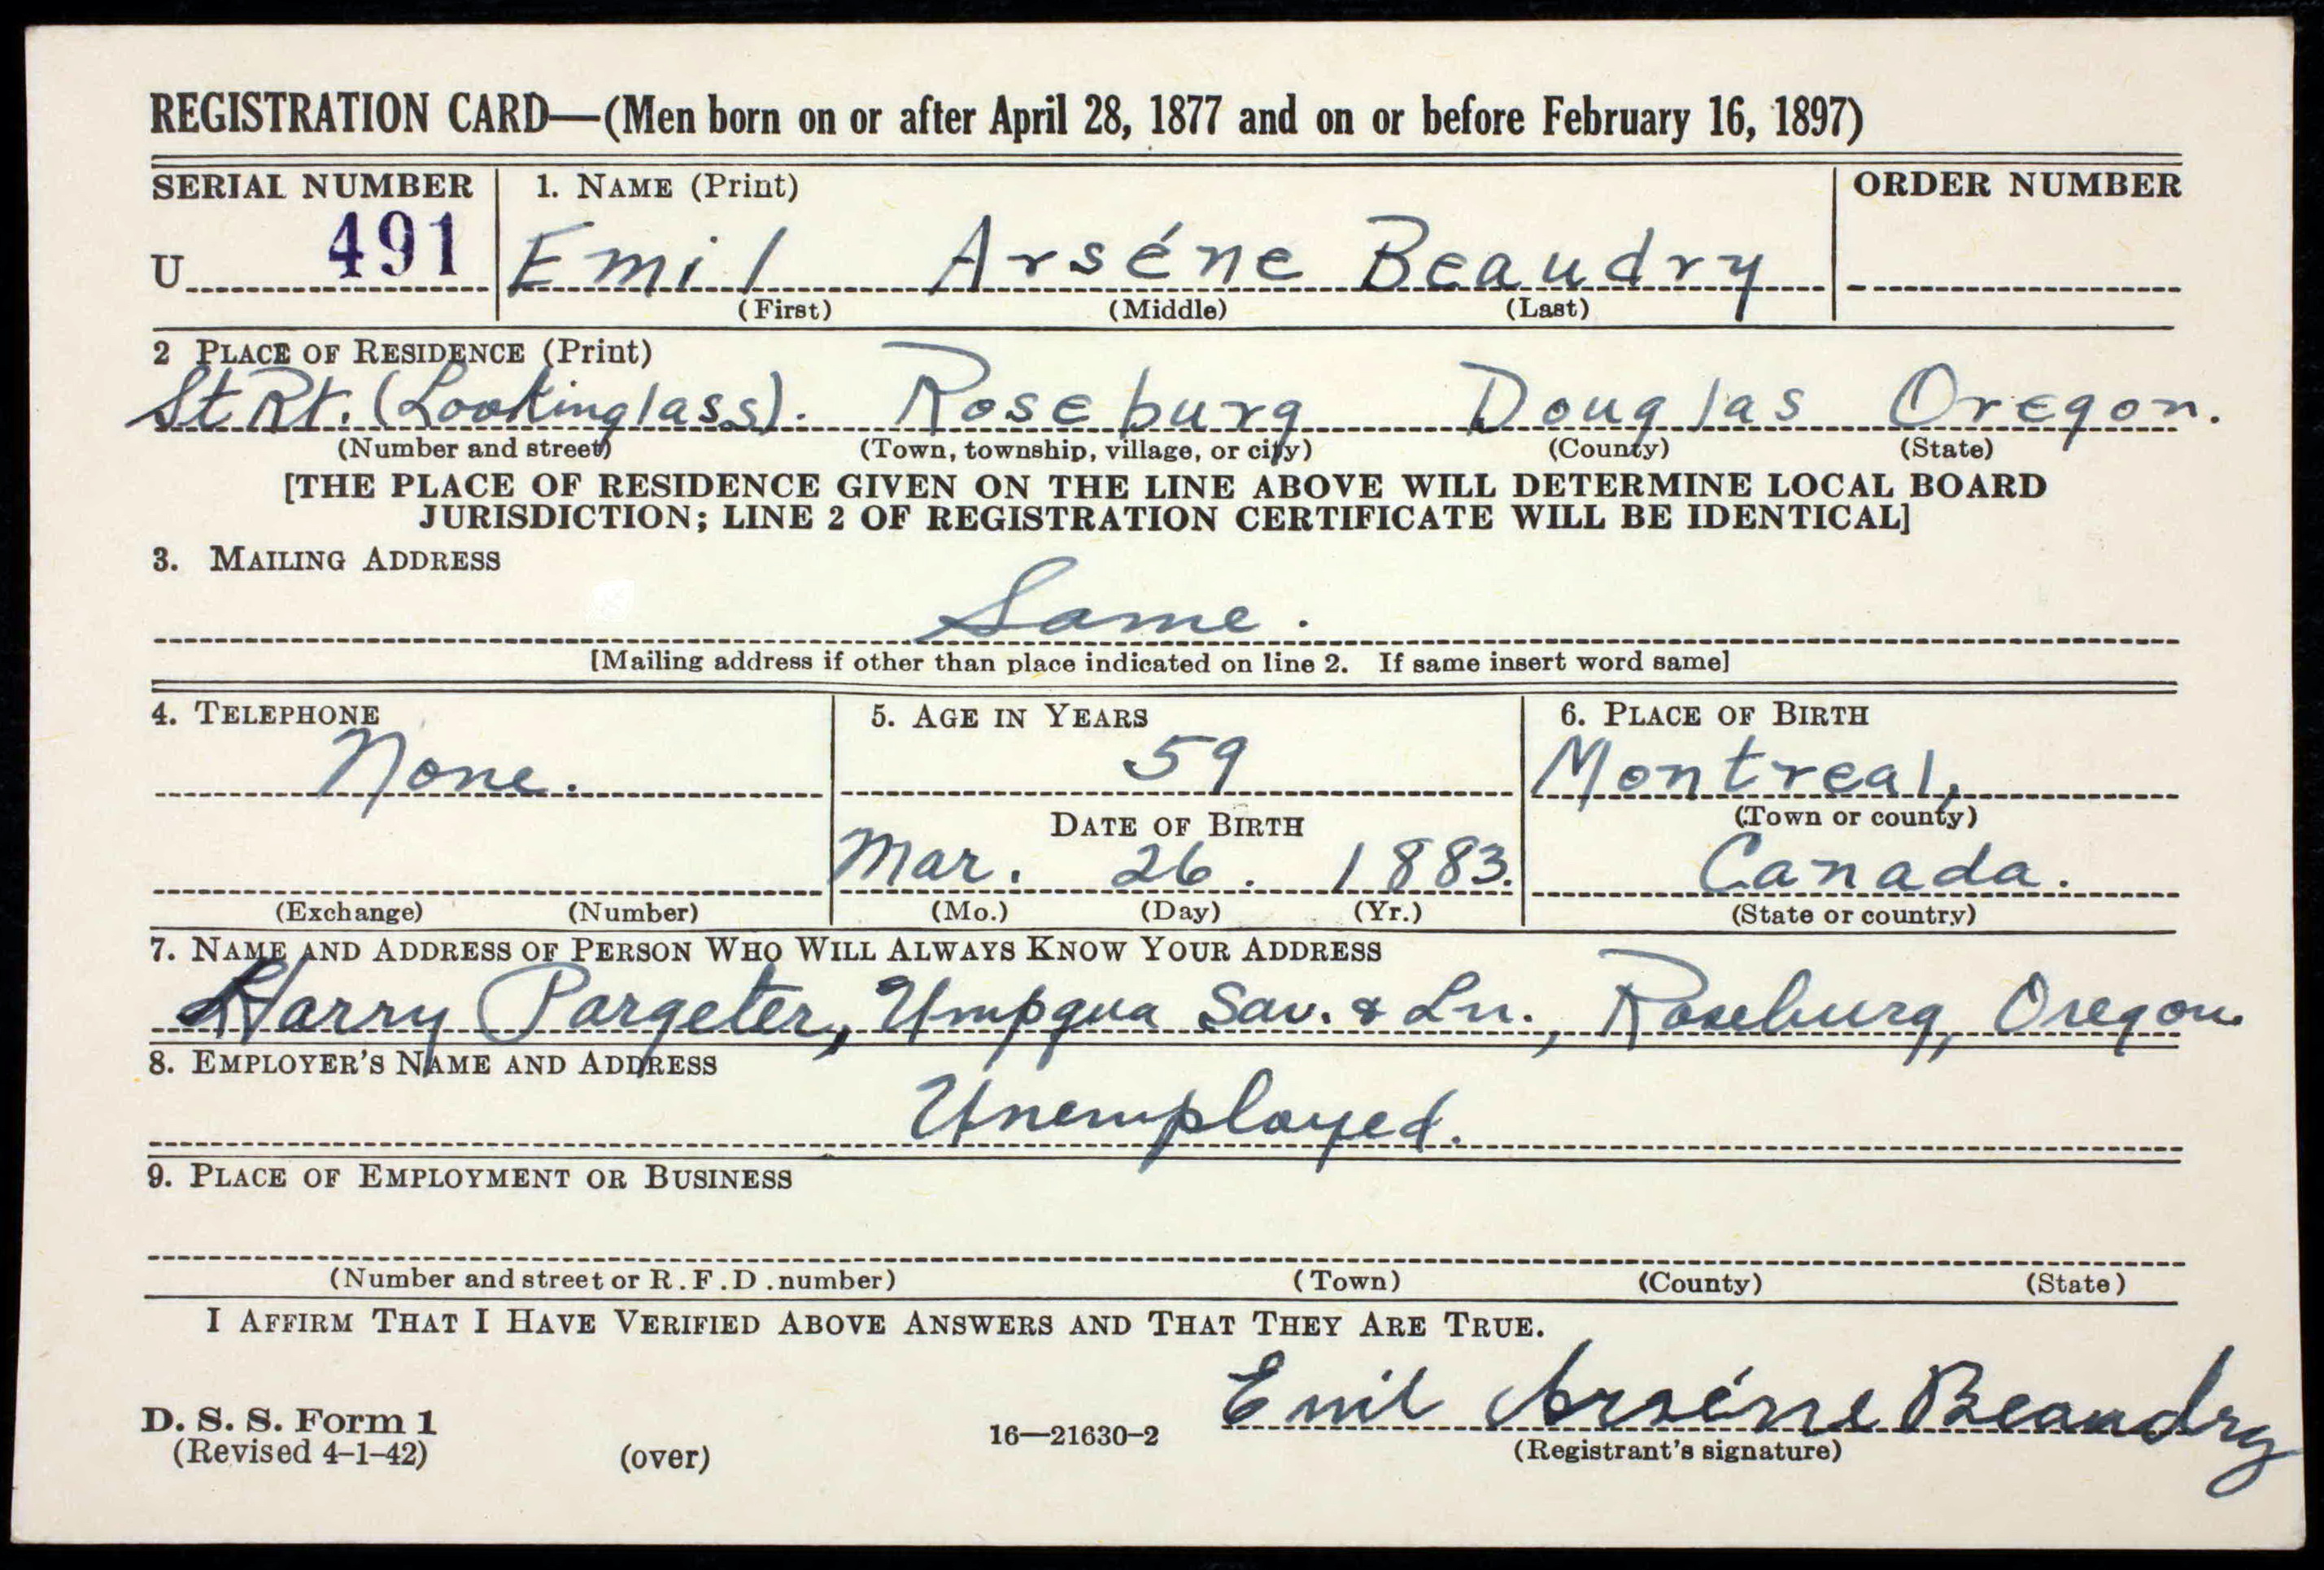 REGISTRATION CARD—(Men born on or after April 28, 1877 and on or before February 16, 1897)
SERIAL NUMBER 1. NAME (Print) ORDER NUMBER
U 491 Emil Arséne Beaudry
(First) (Middle) (Last)
2 PLACE OF RESIDENCE (Print)
St Rt. (Lookinglass). Roseburg Douglas Oregon.
(Number and street) (Town, township, village, or city) (County) (State)
[THE PLACE OF RESIDENCE GIVEN ON THE LINE ABOVE WILL DETERMINE LOCAL BOARD
JURISDICTION; LINE 2 OF REGISTRATION CERTIFICATE WILL BE IDENTICAL]
3. MAILING ADDRESS
Same.
[Mailing address if other than place indicated on line 2. If same insert word same]
4. TELEPHONE 5. AGE IN YEARS 6. PLACE OF BIRTH
None. 59 Montreal,
DATE OF BIRTH (Town or county)
Mar. 26. 1883. Canada.
(Exchange) (Number) (Mo.) (Day) (Yr.) (State or country)
7. NAME AND ADDRESS OF PERSON WHO WILL ALWAYS KNOW YOUR ADDRESS
Harry Pargeter, Umpqua Sav. & Ln., Roseburg, Oregon.
8. EMPLOYER'S NAME AND ADDRESS
Unemployed.
9. PLACE OF EMPLOYMENT OR BUSINESS
(Number and street or R.F.D. number) (Town) (County) (State)
I AFFIRM THAT I HAVE VERIFIED ABOVE ANSWERS AND THAT THEY ARE TRUE.
Emil Arséne Beaudry
D. S. S. Form 1
(Revised 4-1-42) (over) 16—21630-2 (Registrant's signature)